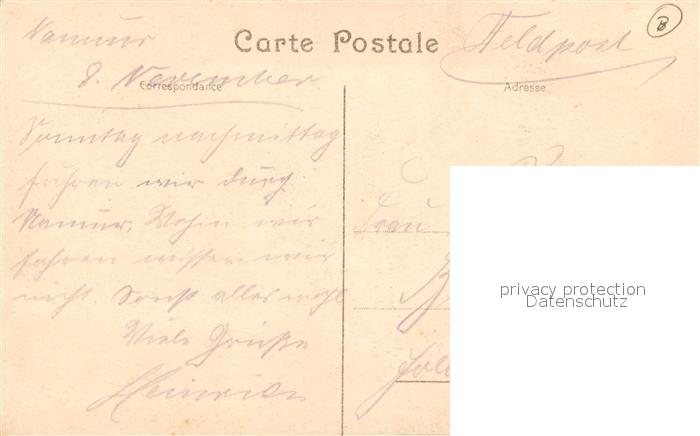 Namur
Carte Postale
Feldpost
B
8. November
Correspondance
Adresse
Sonntag nachmittag
fuhren wir durch
Namur. Wohin wir
fahren wissen wir
nicht. Sonst alles wohl
Viele Grüße
Heinrich
Frau
privacy protection
Datenschutz